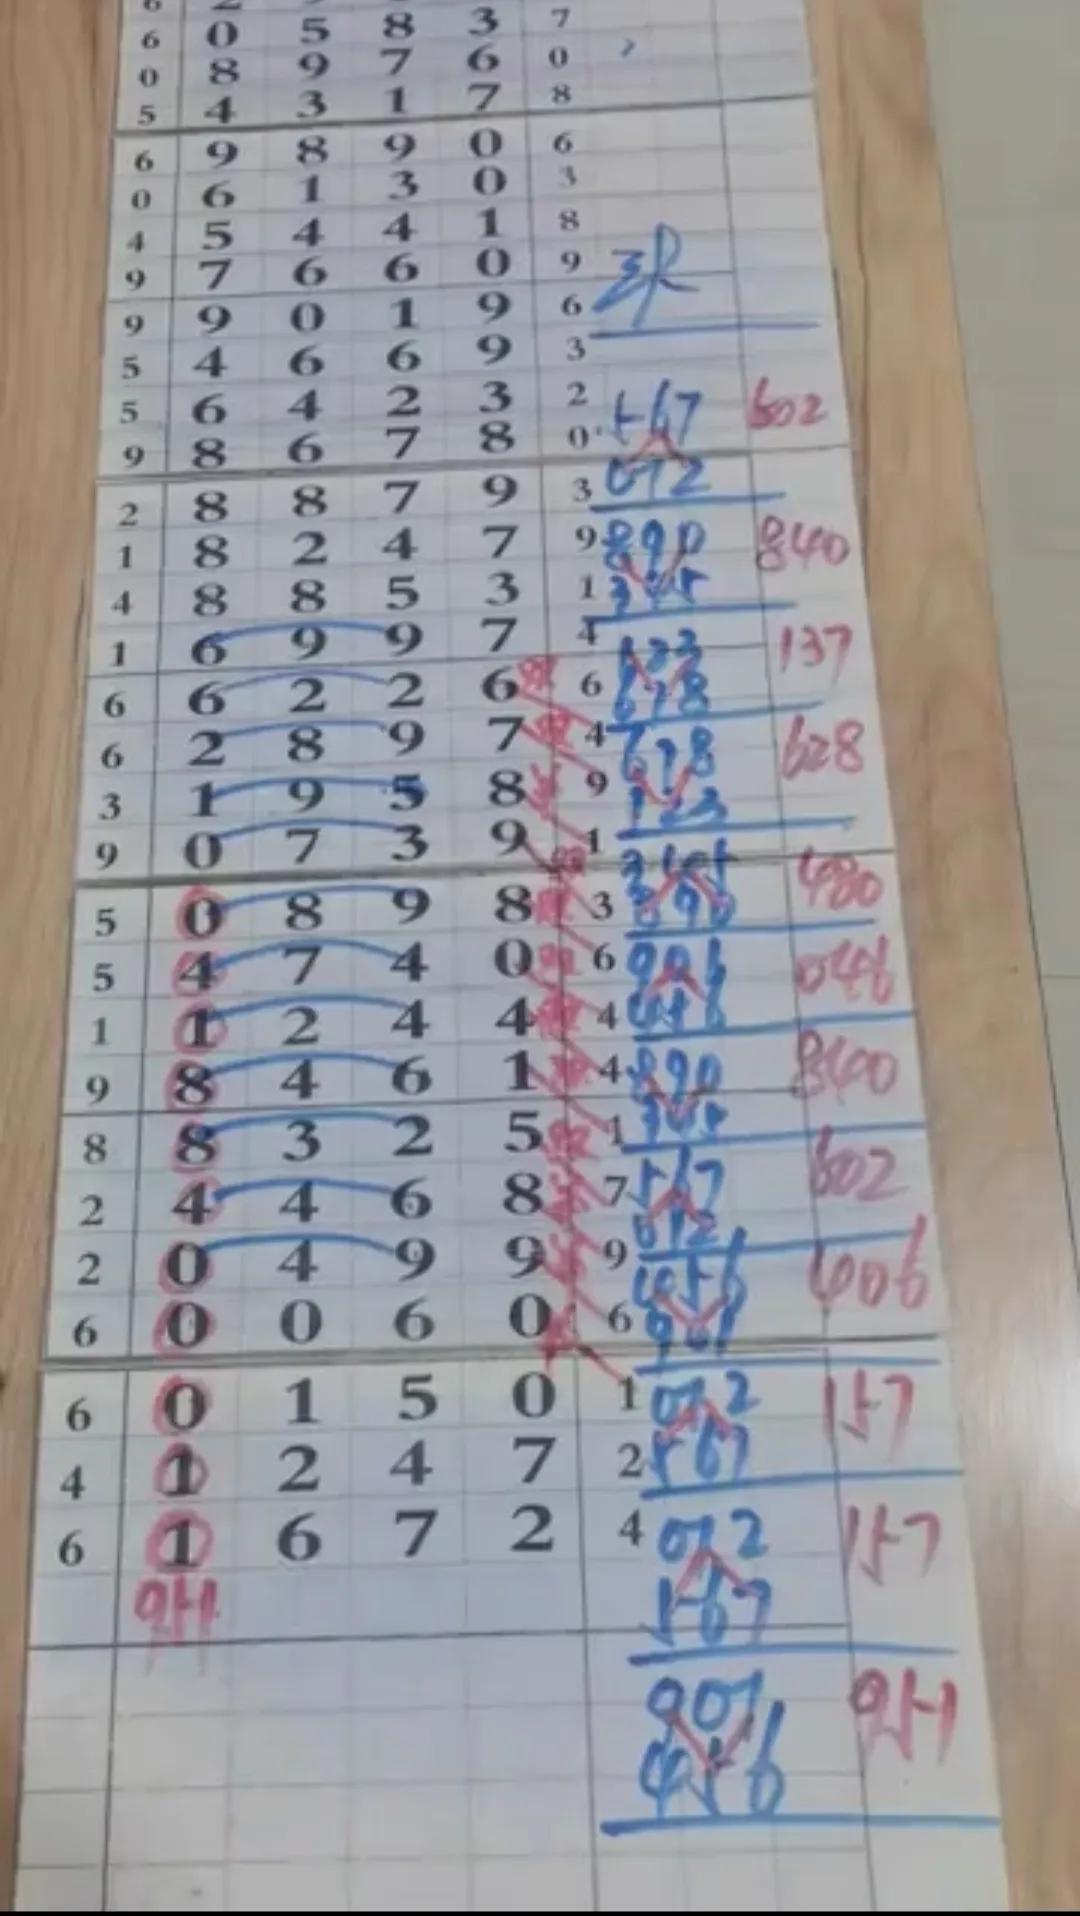 6 0 5 8 3 7
0 8 9 7 6 0
5 4 3 1 7 8
6 9 8 9 0 6
0 6 1 3 0 3
4 5 4 4 1 8
9 7 6 6 0 9
9 9 0 1 9 6
5 4 6 6 9 3
5 6 4 2 3 2 567 602
9 8 6 7 8 0 072
2 8 8 7 9 3
1 8 2 4 7 9 890 840
4 8 8 5 3 1 345
1 6 9 9 7 4 123 137
6 6 2 2 6 6 678
6 2 8 9 7 4 678 628
3 1 9 5 8 9 123
9 0 7 3 9 1 345 480
5 0 8 9 8 3 890
5 4 7 4 0 6 046
1 1 2 4 4 4 456
9 8 4 6 1 4 890 840
8 8 3 2 5 1 345
2 4 4 6 8 7 567 602
2 0 4 9 9 9 456 406
6 0 0 6 0 6
6 0 1 5 0 1 072 157
4 1 2 4 7 2 567
6 1 6 7 2 4 072 157
951 567
901 951
456